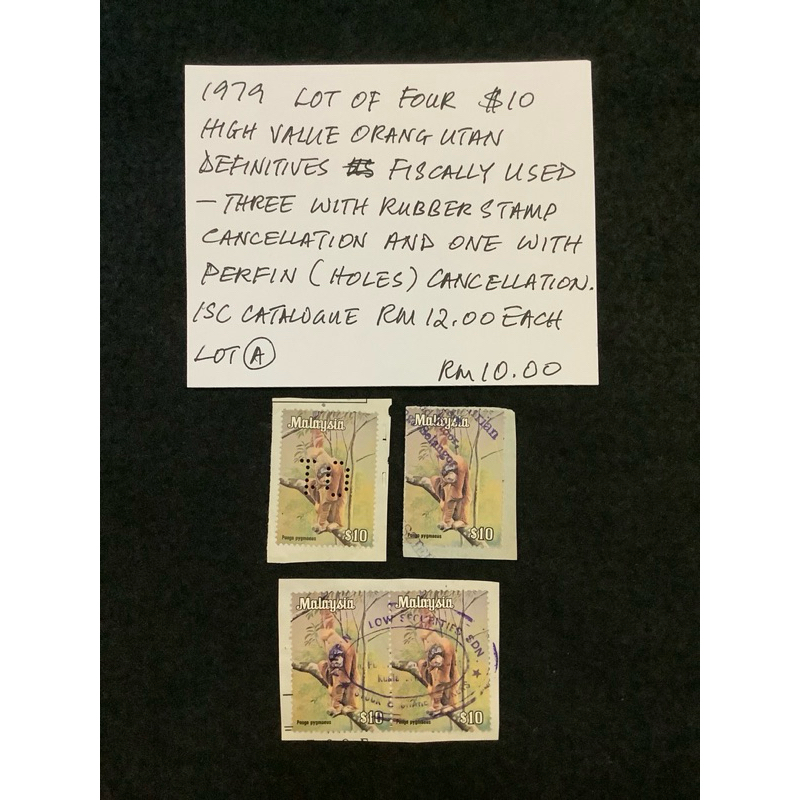 1979 LOT OF FOUR $10
HIGH VALUE ORANG UTAN
DEFINITIVES FISCALLY USED
- THREE WITH RUBBER STAMP
CANCELLATION AND ONE WITH
PERFIN (HOLES) CANCELLATION.
ISC CATALOGUE RM 12.00 EACH
LOT A
RM10.00
Malaysia
Pongo pygmaeus
$10
Malaysia
Selangor
Pongo pygmaeus
$10
Malaysia
Malaysia
LOW SECURITIES SDN
Pongo pygmaeus
$10
Pongo pygmaeus
$10